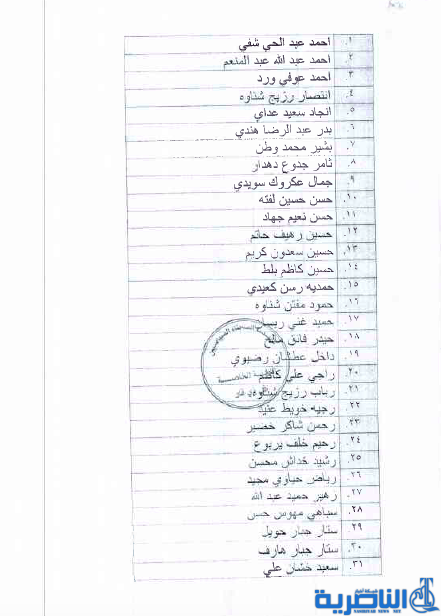 ١. احمد عبد الحي شفي
٢. احمد عبد الله عبد المنعم
٣. احمد عوفي ورد
٤. انتصار رزيج شناوه
٥. انجاد سعيد عداي
٦. بدر عبد الرضا هندي
٧. بشير محمد وطن
٨. ثامر جدوع دهدار
٩. جمال عكروك سويدي
١٠. حسن حسين لفته
١١. حسن نعيم جهاد
١٢. حسين رهيف حاتم
١٣. حسين سعدون كريم
١٤. حسين كاظم بلط
١٥. حمديه رسن كعيدي
١٦. حمود مفتن شناوه
١٧. حميد غني ريسان
١٨. حيدر فائق صالح
١٩. داخل عطشان رضيوي
٢٠. راجي علي كاظم
٢١. رباب رزيج شناوه
٢٢. رجيه خويط عنيد
٢٣. رحمن شاكر خضير
٢٤. رحيم خلف يربوع
٢٥. رشيد خداش محسن
٢٦. رياض حياوي مجيد
٢٧. زهير حميد عبد الله
٢٨. سباهي مهوس حسن
٢٩. ستار جبار حويل
٣٠. ستار جبار هارف
٣١. سعيد خشان علي
شبكة أخبار
الناصرية